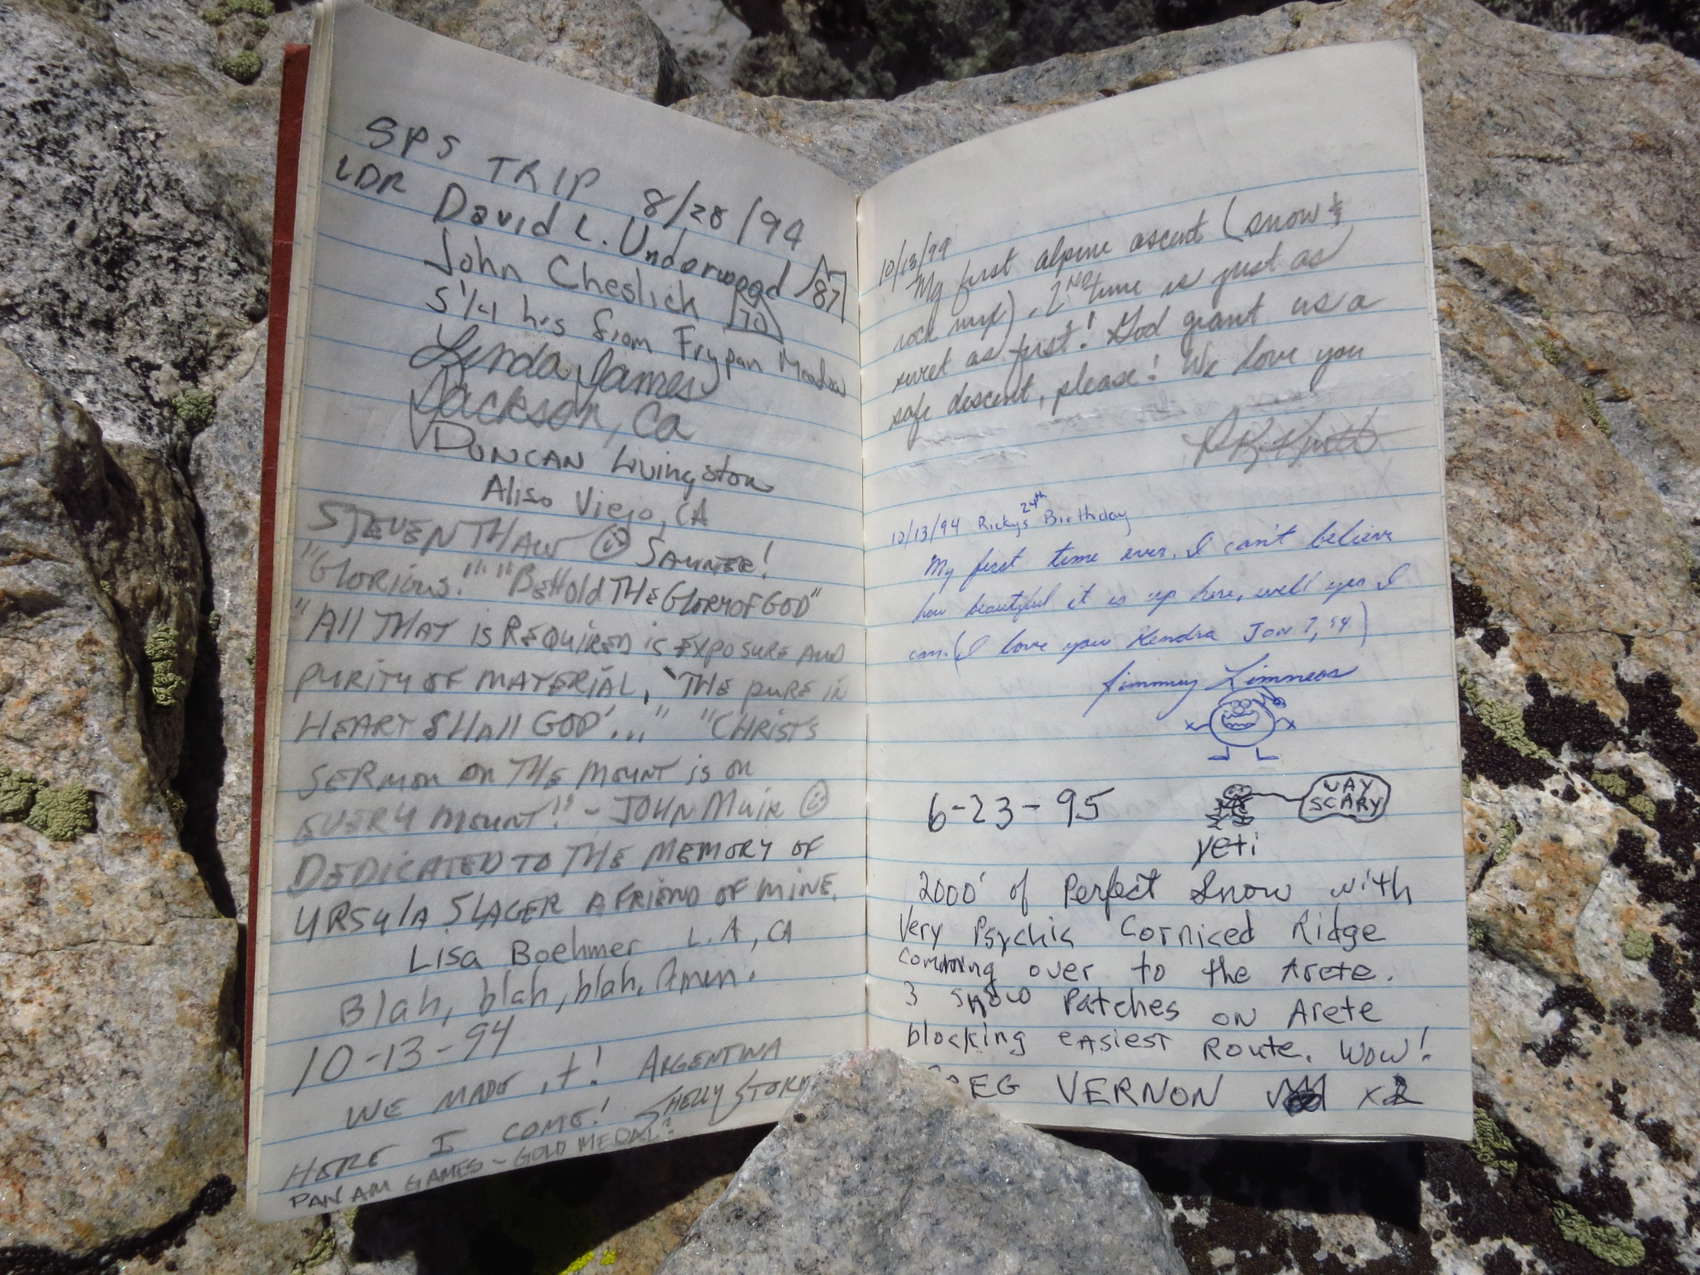 SPS TRIP 8/28/94
LDR David L. Underwood 87
John Cheslick 70
5 1/4 hrs from Frypan Meadow
Linda James
Jackson, Ca
DUNCAN Livingston
Aliso Viejo, CA
STEVEN THAW
"GLORIOUS!" "BEHOLD THE GLORY OF GOD"
"All THAT is REQUIRED is EXPOSURE AND
PURITY OF MATERIAL, 'THE PURE IN
HEART SHAll GOD'..." "CHRIST'S
SERMON ON THE MOUNT is ON
EVERY MOUNT!" - JOHN Muir
DEDICATED TO THE MEMORY OF
URSULA SLAGER A FRIEND OF MINE.
Lisa Boehmer L.A, CA
Blah, blah, blah, Amen.
10-13-94
WE MADE it! ARGENTINA
HERE I COME! SHELLY STORM
PAN AM GAMES - GOLD MEDAL?
10/13/94
My first alpine ascent (snow &
rock mix), 2ND time is just as
sweet as first! God grant us a
safe descent, please! We love you
10/13/94 Ricky's 24th Birthday
My first time ever. I can't believe
how beautiful it is up here, well yes I
can. (I love you Kendra Jan 7, 94)
Jimmy
6-23-95
WAY
SCARY
yeti
2000' of Perfect Snow with
Very Psychic Corniced Ridge
coming over to the Arete.
3 snow Patches on Arete
blocking easiest Route. Wow!
GREG VERNON x2